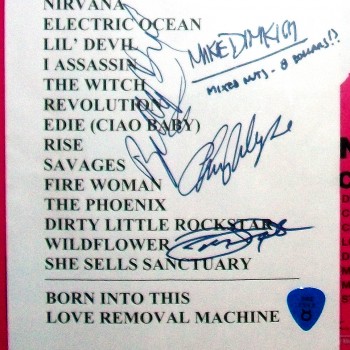 NIRVANA
ELECTRIC OCEAN
LIL' DEVIL
I ASSASSIN
THE WITCH
REVOLUTION
EDIE (CIAO BABY)
RISE
SAVAGES
FIRE WOMAN
THE PHOENIX
DIRTY LITTLE ROCKSTAR
WILDFLOWER
SHE SELLS SANCTUARY
BORN INTO THIS
LOVE REMOVAL MACHINE
MIKE DIMKICH
MIXED NUTS - 8 DOLLARS!?